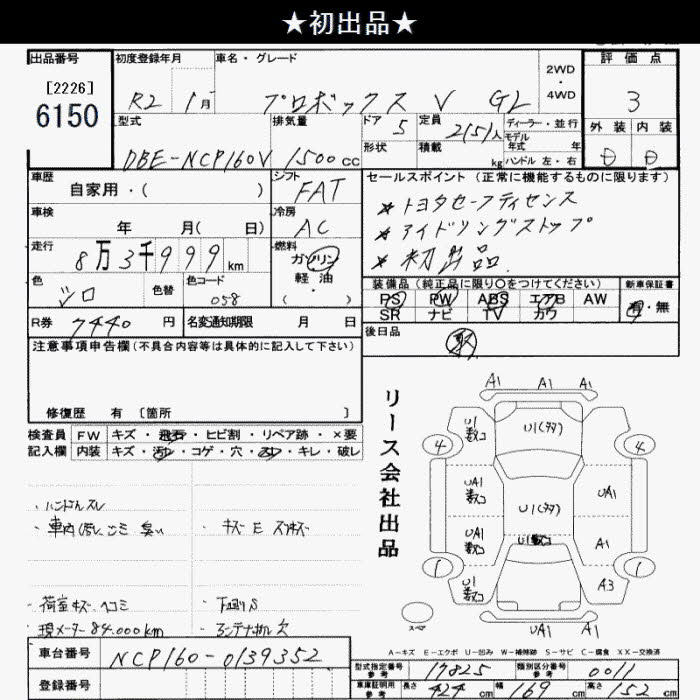 ★初出品★
出品番号
[2226]
6150
初度登録年月
R2 1月
車名・グレード
プロボックス V GL
2WD
・
4WD
評価点
3
外装 内装
型式
DBE-NCP160V
排気量
1500 cc
ドア 5
定員 2(5)人
形状
積載 kg
ディーラー・並行
モデル
年式 年
ハンドル 左・右
車歴
自家用・( )
シフト
FAT
車検
年 月( 日)
冷房
AC
走行
8万3千999 km
燃料
ガソリン
軽油
( ・ )
色
シロ
色替
色コード
058
R券 7440 円
名変通知期限 月 日
セールスポイント (正常に機能するものに限ります)
★トヨタセーフティセンス
★アイドリングストップ
★初出品.
装備品 (純正品に限り○をつけてください)
新車保証書
PS PW ABS エアB AW
SR ナビ TV カワ
有・無
後日品
取
注意事項申告欄 (不具合内容等は具体的に記入して下さい)
修復歴 有 [箇所 ]
検査員 FW キズ・飛石・ヒビ割・リペア跡・×要
記入欄 内装 キズ・汚れ・コゲ・穴・凹・キレ・破レ
・ハンドルスレ
・車内 汚レ ゴミ 臭い
・キズ E スリキズ
・荷室キズ ヘコミ
・下回りS
・現メーター84.000km
・アンテナ折レ欠
リース会社出品
A1 A1 A1
U1数コ
U1(多々)
4
4
UA1数コ
U1(多々)
UA1
UA1数コ
U1数コ
A1
1
1
U1数コ
A3
スペア
UA1 A1
A-キズ E-エクボ U-凹み W-補修跡 S-サビ C-腐食 XX-交換済
車台番号 NCP160-0139352
登録番号
型式指定番号
参考
17825
類別区分番号
参考
0011
車庫証明用
参考
長さ 424 cm 幅 169 cm 高さ 152 cm